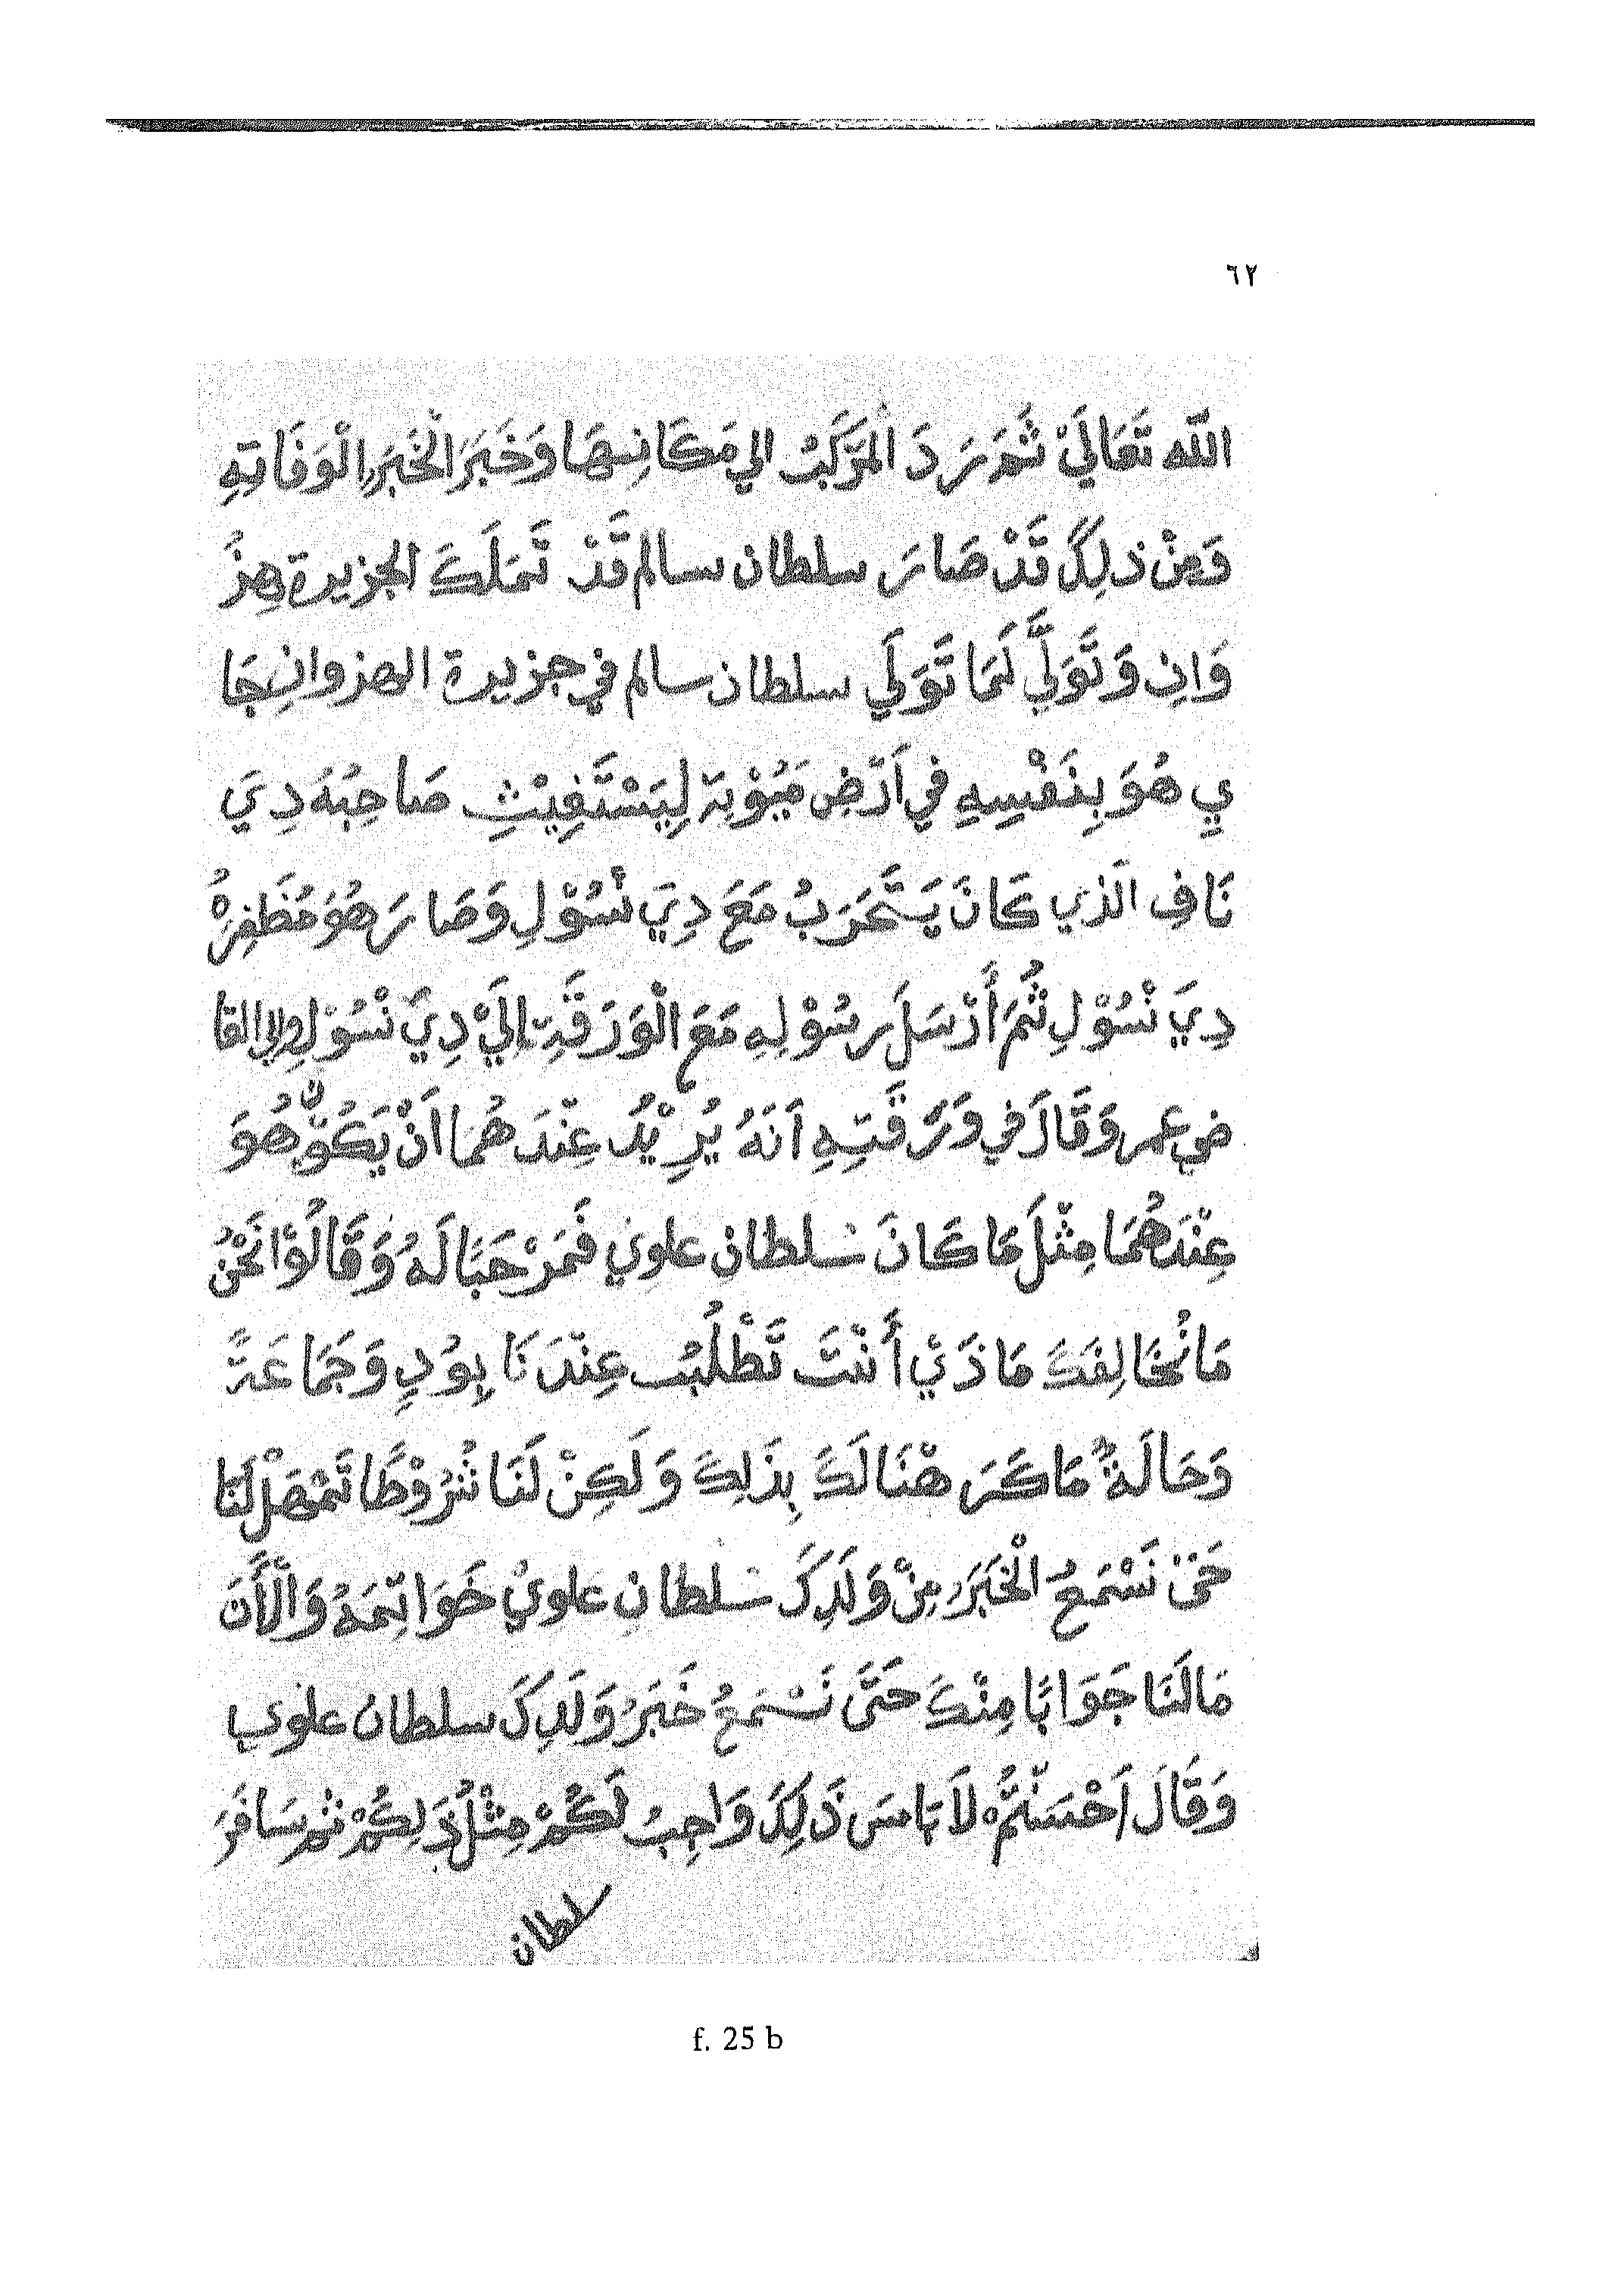 ٦٢
الله تَعَالَيْ ثُمَّ رَدَ الْمَرْكَبُ الي مَكَانِهَا وَخَبَرَ الْخَبَرِ الْوَفَاتِهِ
وَمِنْ ذلِكَ قَدْ صَارَ سلطان سالم قَدْ تَمَلَكَ الجزيرة هِزُ
وَانِ وَتَوَلَّي لَمَا تَوَلَي سلطان سالم في جزيرة الهزوانِ جَا
ي هُوَ بِنَفْسِهِ في اَرْضِ مَيُوْتِهْ لِيَسْتَغِيْثِ صَاحِبُهُ دِيَ
نَافِ الَذي كَانَ يَتَحَرَبُ مَعَ دِيَ نْسُوْلِ وَصَارَ هُوَ مُظَفِرُهْ
دِيَ نْسُوْلِ ثُمَّ أَرْسَلَ رسُوْلِهِ مَعَ الْوَرَقَةِ اِلَيْ دِيَ نْسُوْلِ والي القا
ضي عمر وَقَالَ في وَرَقَتِهِ اَنَهُ يُرِيْدُ عِنْدَهُمَا اَنْ يَكُوْنَ هُوَ
عِنْدَهُمَا مِثْلَ مَا كَانَ سلطان علوي فَمَرْحَبًا لَهُ وَقَالُوْا نَحْنُ
مَا نُخَالِفَكَ مَا ذَيْ أَنْتَ تَطْلُبُ عِنْدَنَا بِوُدٍ وَجَمَاعَةً
وَحَالَةً مَاكَرَ هْنَالَكَ بِذَلِكَ وَلَكِنْ لَنَا شُرُوْطًا تَمْهَلْ لَنَا
حَتَى نَسْمَعُ الْخَبَرَ مِنْ وَلَدِكَ سلطانِ علويْ خَوَاتِمَهُ وَالْأَنَ
مَالَنَا جَوَابًا مِنْكَ حَتَّى نَسْمَعُ خَبَرُ وَلَدِكَ سلطان علوي
وَقَالَ اَحْسَنْتُمْ لَا بَاسَ ذَلِكَ وَاجِبُ لَكُمْ مِثْلُ ذَلِكُمْ ثم سَافَرَ
سلطان
f. 25 b